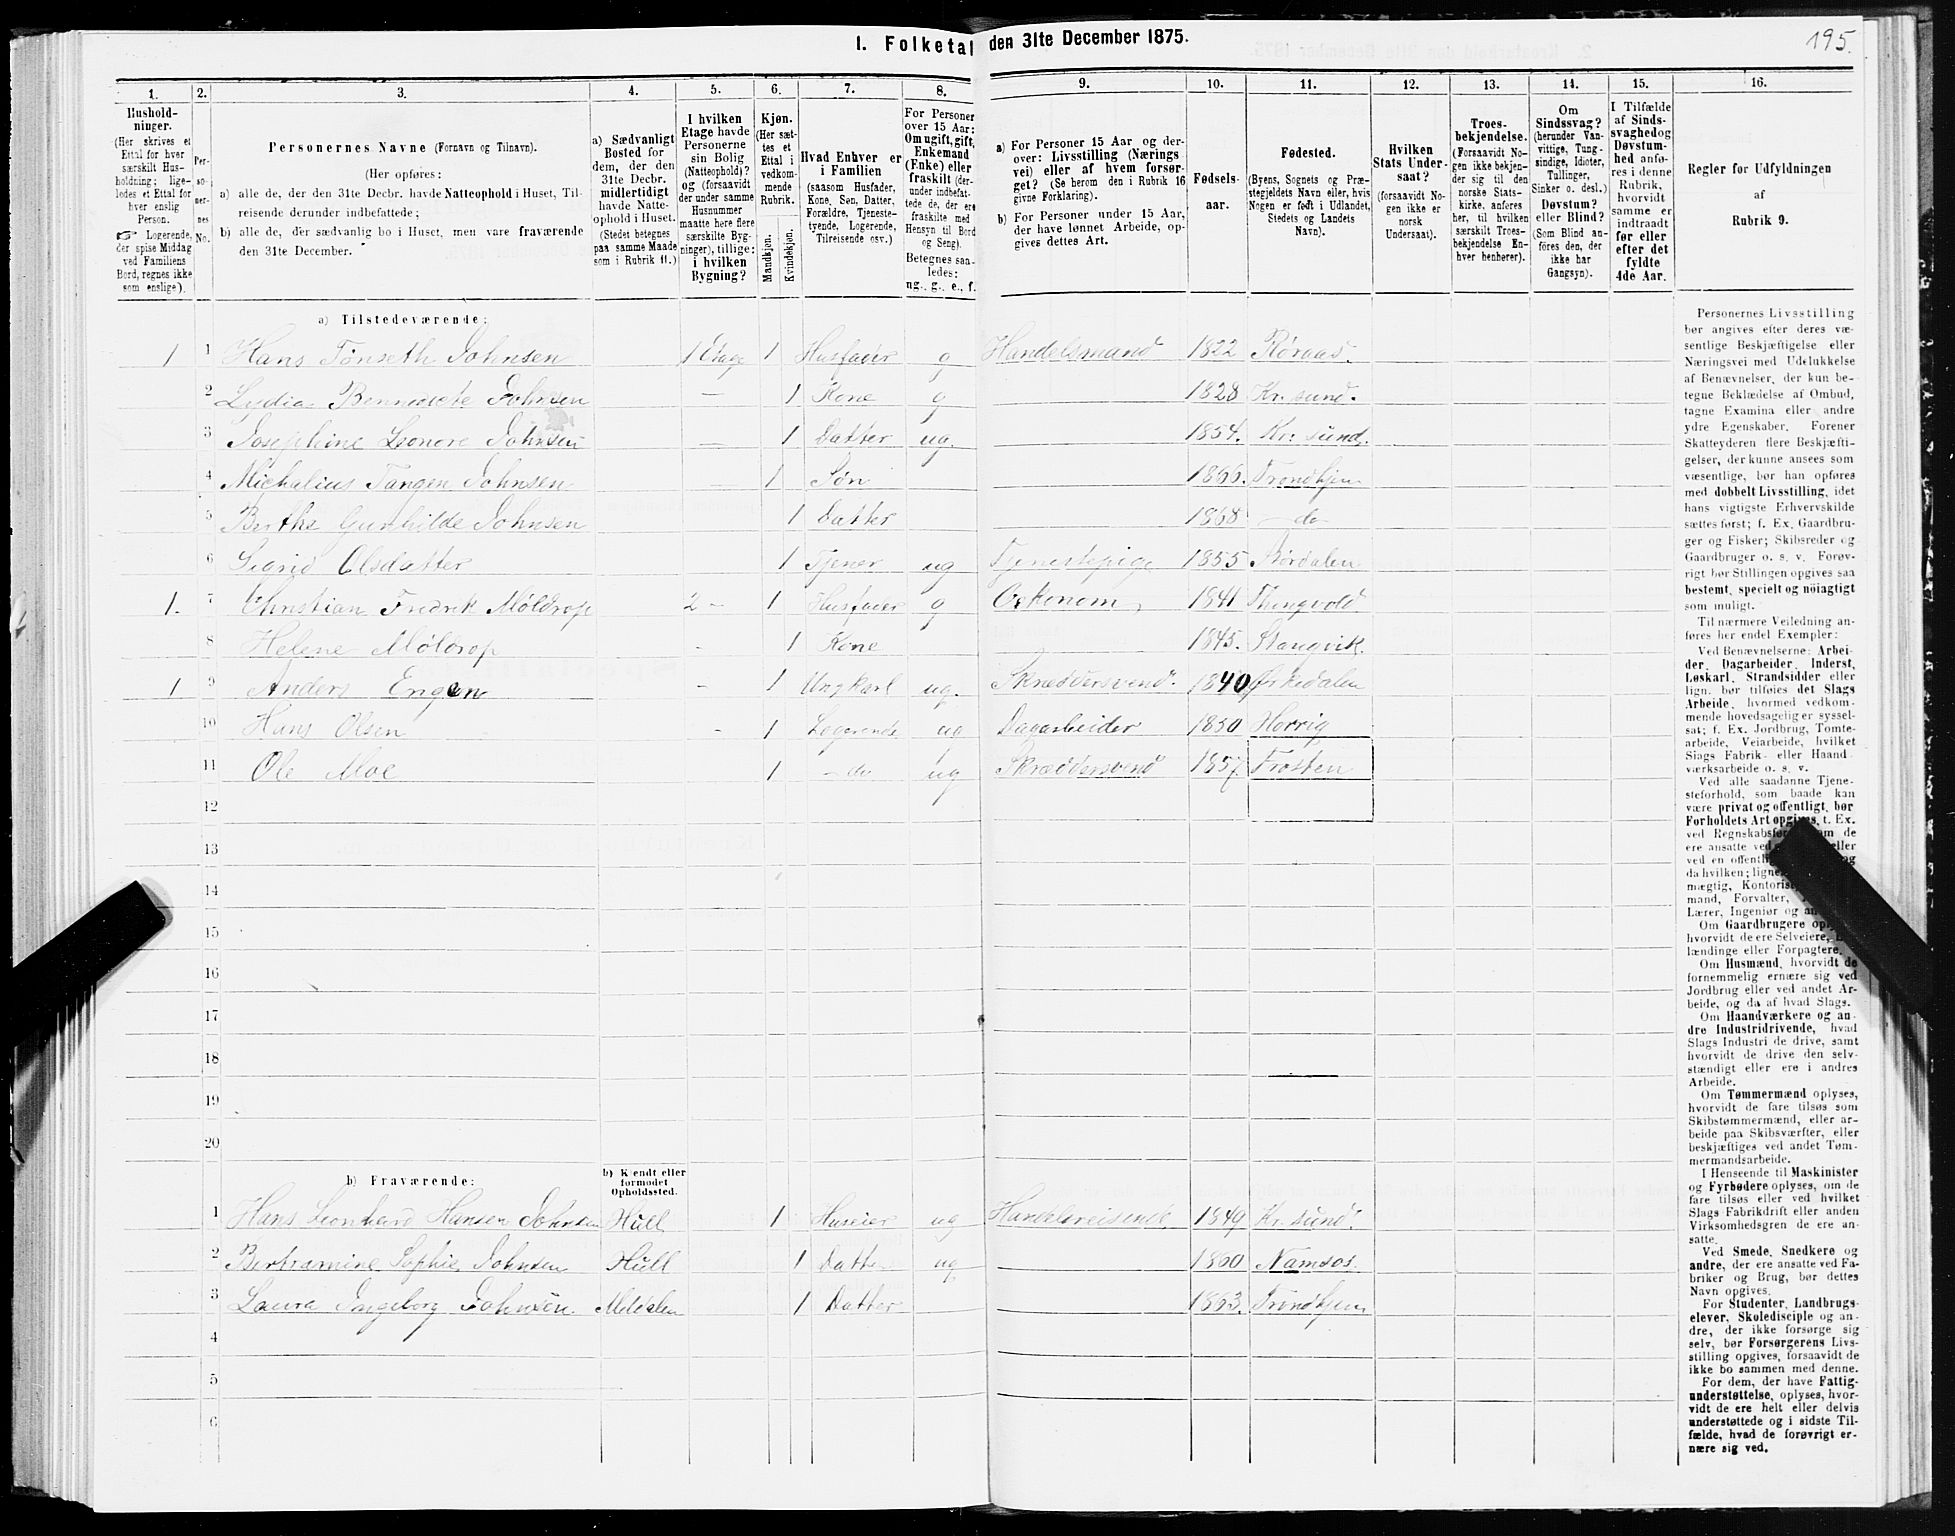 I. Folketal den 31te December 1875.
195.
1. 2. 3. 4. 5. 6. 7. 8. 9. 10. 11. 12. 13. 14. 15. 16.
Hushold-
ninger.
(Her skrives et
Ettal for hver
særskilt Hus-
holdning; lige-
ledes et Ettal for
hver enslig
Person.
☞ Logerende,
der spise Middag
ved Familiens
Bord, regnes ikke
som enslige).
Per-
so-
ner-
nes
No.
Personernes Navne (Fornavn og Tilnavn).
(Her opføres:
a) alle de, der den 31te Decbr. havde Natteophold i Huset, Til-
reisende derunder indbefattede;
b) alle de, der sædvanlig bo i Huset, men vare fraværende
den 31te December.
a) Sædvanligt
Bosted for
dem, der den
31te Decbr.
midlertidigt
havde Natte-
ophold i Huset.
(Stedet betegnes
paa samme Maade
som i Rubrik 11.)
I hvilken
Etage havde
Personerne
sin Bolig
(Natteophold)?
og (forsaavidt
der under samme
Husnummer
maatte høre flere
særskilte Byg-
ninger), tillige:
i hvilken
Bygning?
Kjøn.
(Her sæt-
tes et
Ettal i
vedkom-
mende
Rubrik.
Mandkjøn.
Kvindekjøn.
Hvad Enhver er
i Familien
(saasom Husfader,
Kone, Søn, Datter,
Forældre, Tjeneste-
tyende, Logerende,
Tilreisende osv.)
For Personer
over 15 Aar:
Om ugift, gift,
Enkemand
(Enke) eller
fraskilt (der-
under indbefat-
tede de, der ere
fraskilte med
Hensyn til Bord
og Seng).
Betegnes saa-
ledes:
ug., g., e., f.
a) For Personer 15 Aar og der-
over: Livsstilling (Nærings-
vei) eller af hvem forsør-
get? (Se herom den i Rubrik 16
givne Forklaring).
b) For Personer under 15 Aar,
der have lønnet Arbeide, op-
gives dettes Art.
Fødsels-
aar.
Fødested.
(Byens, Sognets og Præ-
stegjeldets Navn eller, hvis
Nogen er født i Udlandet,
Stedets og Landets
Navn).
Hvilken
Stats Under-
saat?
(forsaavidt No-
gen ikke er
norsk
Undersaat).
Troes-
bekjendelse.
(Forsaavidt No-
gen ikke bekjen-
der sig til den
norske Stats-
kirke, anføres
her, til hvilken
særskilt Troes-
bekjendelse En-
hver henhører).
Om
Sindssvag?
(herunder Van-
vittige, Tung-
sindige, Idioter,
Tullinger,
Sinker o. desl.)
Døvstum?
eller Blind?
(Som Blind an-
føres den, der
ikke har
Gangsyn).
I Tilfælde
af Sinds-
svaghed og
Døvstum-
hed anfø-
res i denne
Rubrik,
hvorvidt
samme er
indtraadt
før eller
efter det
fyldte
4de Aar.
Regler for Udfyldningen
af
Rubrik 9.
a) Tilstedeværende:
1 1 Hans Tønseth Johnsen 1 Etage 1 Husfader g Handelsmand 1822 Røraas.
2 Lydia Bennedicte Johnsen — 1 Kone g 1828 Kr. sund.
3 Josephine Leonore Johnsen — 1 Datter ug. 1854. Kr: sund.
4 Michalius Tangen Johnsen — 1 Søn 1866. Trondhjem
5 Berthe Gunhilde Johnsen 1 Datter 1868 — do
6 Sigrid Olsdatter 1 Tjener ug Tjenestepige 1855 Størdalen
1. 7 Christian Fredrik Møldrop 2 — 1 Husfader g Oekonom 1841 Thingvold
8 Helene Møldrop - 1 Kone 1845. Stangvik.
1 9 Anders Engen - 1 Ungkarl ug. Skræddersvend. 1840 Ørkedalen
10 Hans Olsen - 1 Logerende ug Dagarbeider 1850 Horrig
11 Ole Moe 1 — do ug Skræddersvend 1857. Frosten
12
13
14
15
16
17
18
19
20
b) Fraværende:
b) Kjendt eller
formodet
Opholdssted.
1 Hans Leonhard Hansen Johnsen Hull 1 Huseier ug Handelsreisende 1849 Kr. sund.
2 Bertramine Sophie Johnsen Hull 1 Datter ug 1860 Namsos.
3 Laura Ingeborg Johnsen. Meldalen 1 Datter 1863. Trondhjem
4
5
6
Personernes Livsstilling
bør angives efter deres væ-
sentlige Beskjæftigelse eller
Næringsvei med Udelukkelse
af Benævnelser, der kun be-
tegne Beklædelse af Ombud,
tagne Examina eller andre
ydre Egenskaber. Forener
Skatteyderen flere Beskjæfti-
gelser, der kunne ansees som
væsentlige, bør han opføres
med dobbelt Livsstilling, idet
hans vigtigste Erhvervskilde
sættes først; f. Ex. Gaardbru-
ger og Fisker; Skibsreder og
Gaardbruger o. s. v. Forøv-
rigt bør Stillingen opgives saa
bestemt, specielt og nöiagtigt
som muligt.
Til nærmere Veiledning an-
føres her endel Exempler:
Ved Benævnelserne: Arbei-
der, Dagarbeider, Inderst,
Løskarl, Strandsidder eller
lign. bør tilføies det Slags
Arbeide, hvormed vedkom-
mende hovedsagelig er syssel-
sat; f. Ex. Jordbrug, Tomte-
arbeide, Veiarbeide, hvilket
Slags Fabrik- eller Haand-
værksarbeide o. s. v.
Ved alle saadanne Tjene-
steforhold, som baade kan
være privat og offentligt, bør
Forholdets Art opgives, t. Ex.
ved Regnskabsfør
ere ansatte ved
ved en offentl
da hvilken; lign
mægtig, Kontorist
mand, Forvalter,
Lærer, Ingeniør og
Om Gaardbrugere
hvorvidt de ere Selveiere,
lændinge eller Forpagtere.
Om Husmænd, hvorvidt de
fornemmelig ernære sig ved
Jordbrug eller ved andet Ar-
beide, og da af hvad Slags.
Om Haandværkere og an-
dre Industridrivende, hvad
Slags Industri de drive, samt
hvorvidt de drive den selv-
stændigt eller ere i andres
Arbeide.
Om Tømmermænd oplyses,
hvorvidt de fare tilsøs som
Skibstømmermænd, eller ar-
beide paa Skibsværfter, eller
beskjæftiges ved andet Tøm-
mermandsarbeide.
I Henseende til Maskinister
og Fyrbødere oplyses, om de
fare tilsøs eller ved hvilket
Slags Fabrikdrift eller anden
Virksomhedsgren de ere an-
satte.
Ved Smede, Snedkere og
andre, der ere ansatte ved Fa-
briker og Brug, bør dettes
Navn opgives.
For Studenter, Landbrugs-
elever, Skoledisciple og an-
dre, der ikke forsørge sig
selv, bør Forsørgerens Livs-
stilling opgives, forsaavidt de
ikke bo sammen med denne.
For dem, der have Fattig-
understøttelse, oplyses, hvor-
vidt de ere helt eller delvis
understøttede og i sidste Til-
fælde, hvad de forøvrigt er-
nære sig ved.